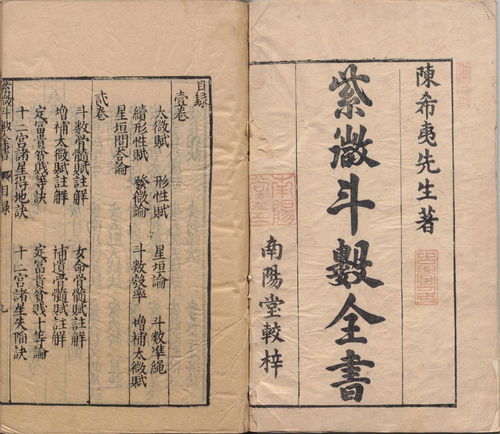 陳希夷先生著
紫微斗數全書
南陽堂較梓
目錄
壹卷
太微賦 形性賦 星垣論 斗數準繩
續形性賦 發微論 斗數發率 增補太微賦
星垣問答論
貳卷
斗數骨髓賦註解 女命骨髓賦註解
增補太微賦註解 補遺骨髓賦註解
定富貴貧賤等訣 定富貴貧賤十等論
十二宮諸星得地訣 十二宮諸星失陷訣
紫微斗數全書 目錄